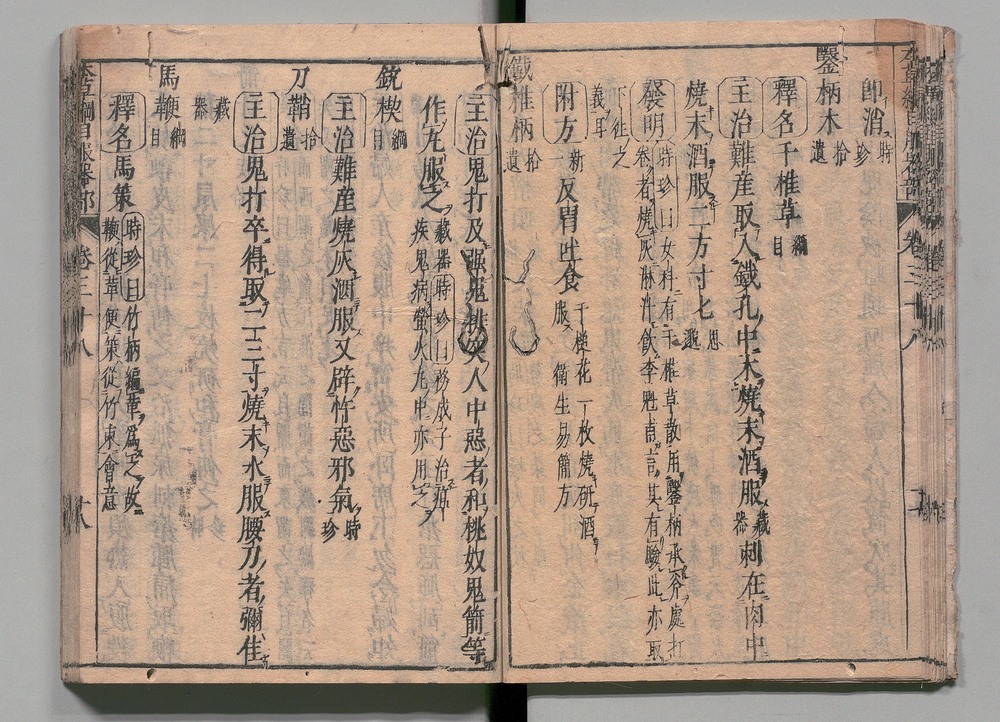 即消時珍
鑿柄木拾遺
釋名千椎草綱目
主治難産取入鐵孔中木燒末酒服藏器刺在肉中
燒末酒服二方寸匕思邈
發明時珍曰女科有千椎草散用鑿柄承斧處打
卷者燒灰淋汁飲李魁甫言其有驗此亦取
下往之
義耳
附方新一反胃吐食千槌花一枚燒研酒
服衛生易簡方
鐵椎柄拾遺
主治鬼打及强鬼排突人中惡者和桃奴鬼箭等
作丸服之藏器時珍曰務成子治瘟
疾鬼病螢火丸中亦用之
銃楔綱目
主治難産燒灰酒服又辟忤惡邪氣時珍
刀鞘拾遺
主治鬼打卒得取二三寸燒末水服腰刀者彌佳
藏器
馬鞭綱目
釋名馬策時珍曰竹柄編革爲之故
鞭從革便策從竹朿會意
本草綱目服器部
卷三十八
十八